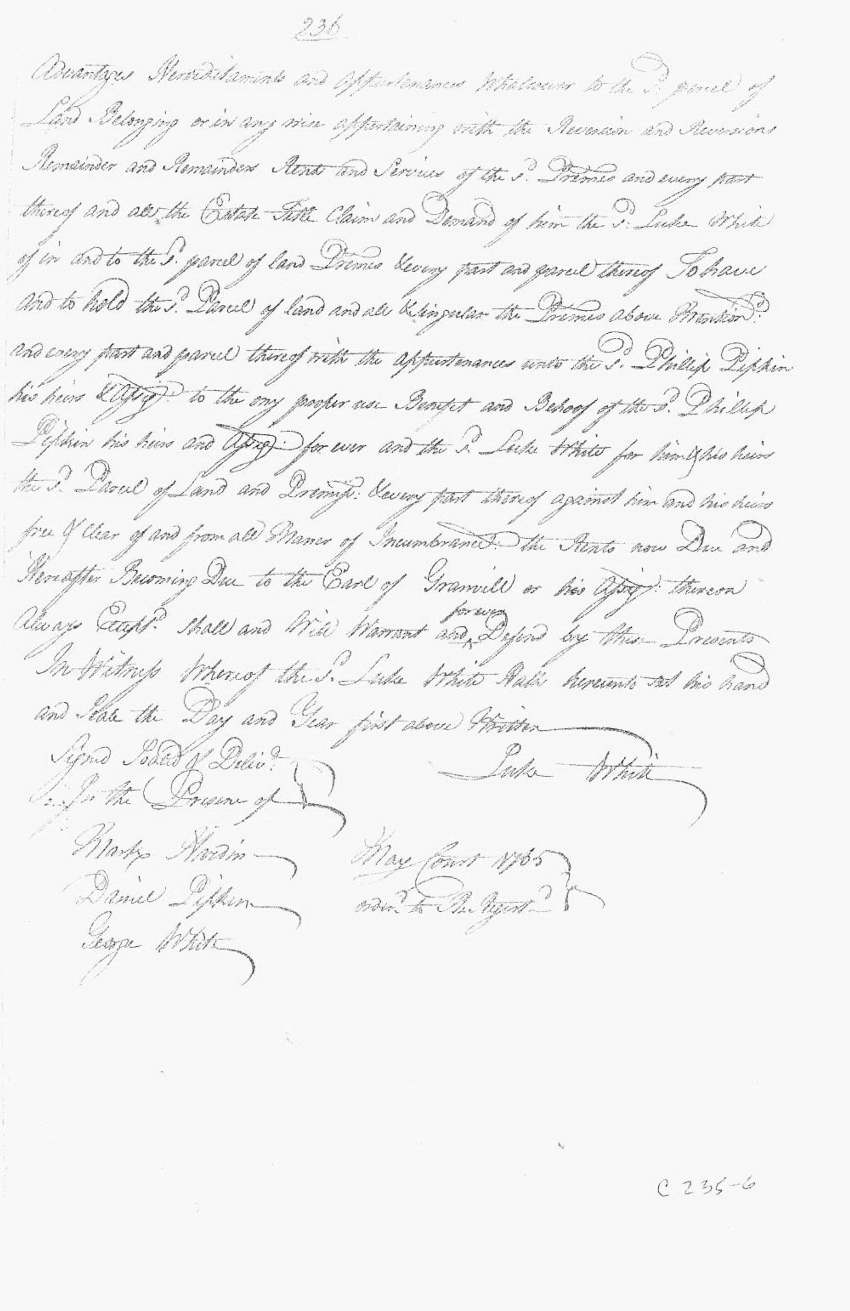 236
Advantages Hereditaments and Appurtenances Whatsoever to the Sd. parcel of
Land Belonging or in any wise appertaining with the Reversion and Reversions
Remainder and Remainders Rents and Services of the Sd. Premes and every part
thereof and all the Estate Title Claim and Demand of him the Sd. Luke White
of in and to the Sd. parcel of land Premes & every part and parcel thereof To have
and to hold the Sd. Parcel of land and all & singular the Premes above Mention.d
and every part and parcel thereof with the appurtenances unto the Sd. Phillip Pipkin
his heirs & Assig.s to the ony proper use Benefet and Behoof of the Sd. Phillip
Pipkin his heirs and Assig.s for ever and the Sd. Luke White for him & his heirs
the Sd. Parcel of Land and Premiss: & every part thereof against him and his heirs
free & Clear of and from all Maner of Incumbrances the Rents now Due and
Hereafter Becoming Due to the Earl of Granvill or his Assig.s thereon
forever
Always Except.d Shall and Will Warrant and ^ Defend by these Presents
In Witness Whereof the Sd. Luke White Hath hereunto set his hand
and Seale the Day and Year first above Written
Signd Seald & Deliv.d
In the Presene of
Luke White
Mark Hardin
Daniel Pipkin
George White
May Court 1765
order.d to Be Regist.d
C 235-6